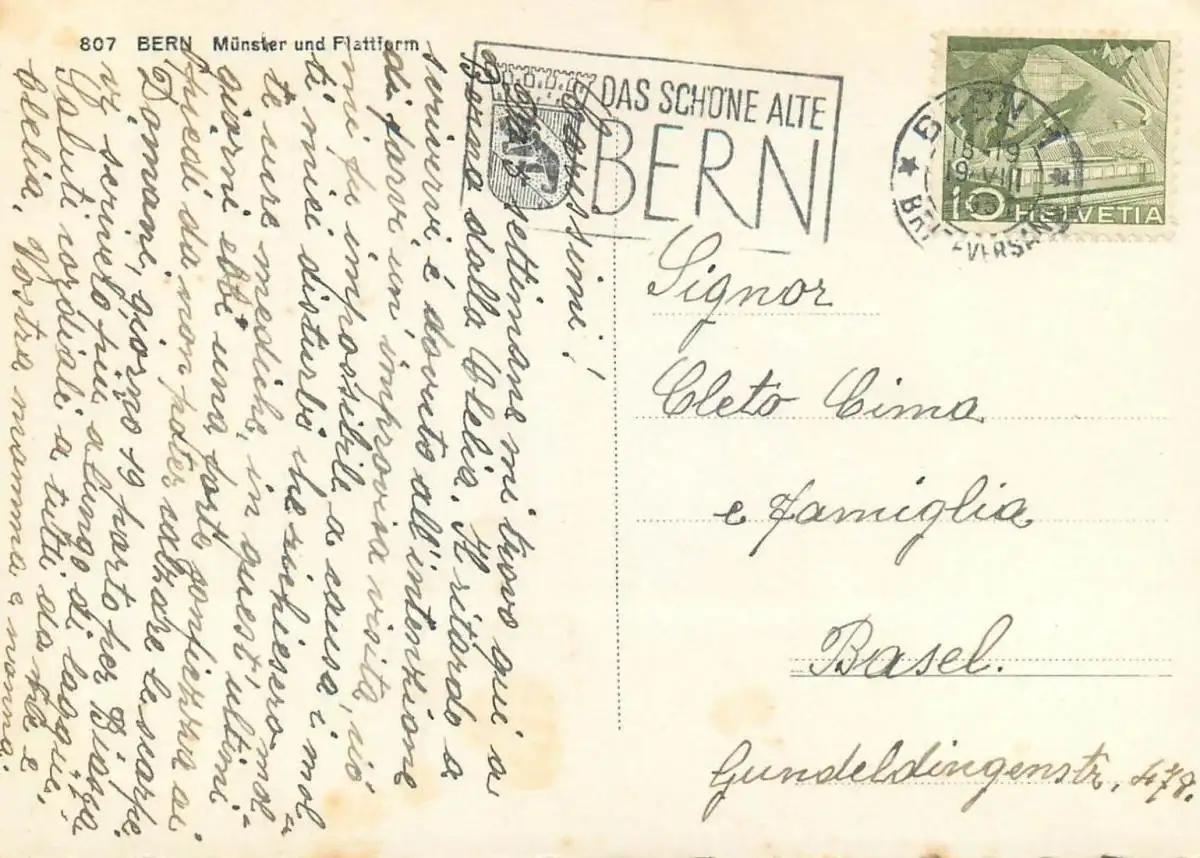 807 BERN Münster und Plattform
DAS SCHÖNE ALTE
BERN
BERN 1
18-19
19·VIII
BRIEFVERSAND
10 HELVETIA
Carissimi!
settimane mi trovo qui a
Berna dalla Clelia. Il ritardo a
scrivervi è dovuto all'intenzione
di farvi un' improvisa visita, ciò
mi fu impossibile a causa, i mol-
ti miei disturbi che richiesero mol-
te cure mediche, in quest' ultimi
giorni ebbi una forte gonfiezza ai
piedi da non poter calzare le scarpe.
Domani, giorno 19 parto per Biasca
vi scriverò più a lungo di laggiù.
Saluti cordiali a tutti da me e
Clelia, Vostra mamma e nonna.
Signor
Cleto Cima
e famiglia
Basel.
Gundeldingenstr, 478.